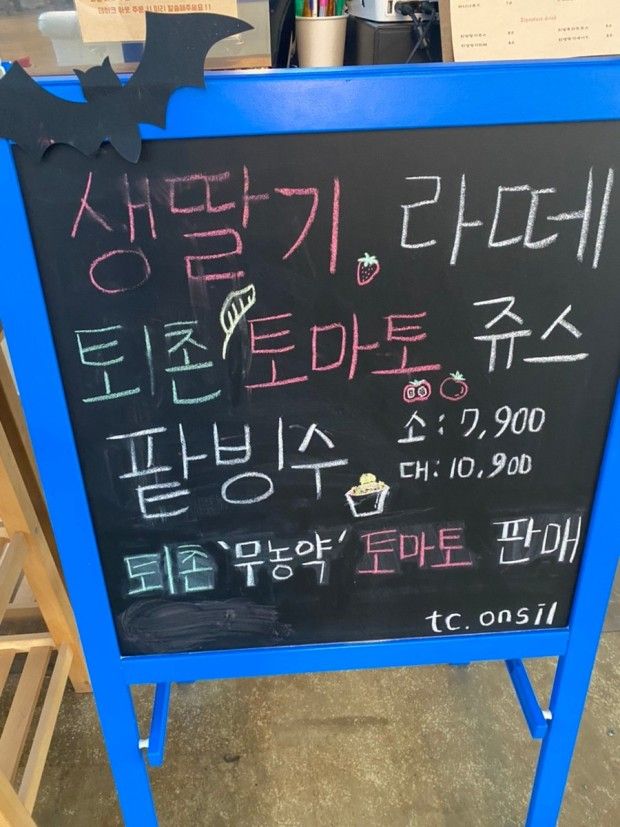 Signature drink
생딸기 라떼
퇴촌 토마토 쥬스
팥빙수 소: 7,900
대: 10,900
퇴촌 '무농약' 토마토 판매
tc. onsil